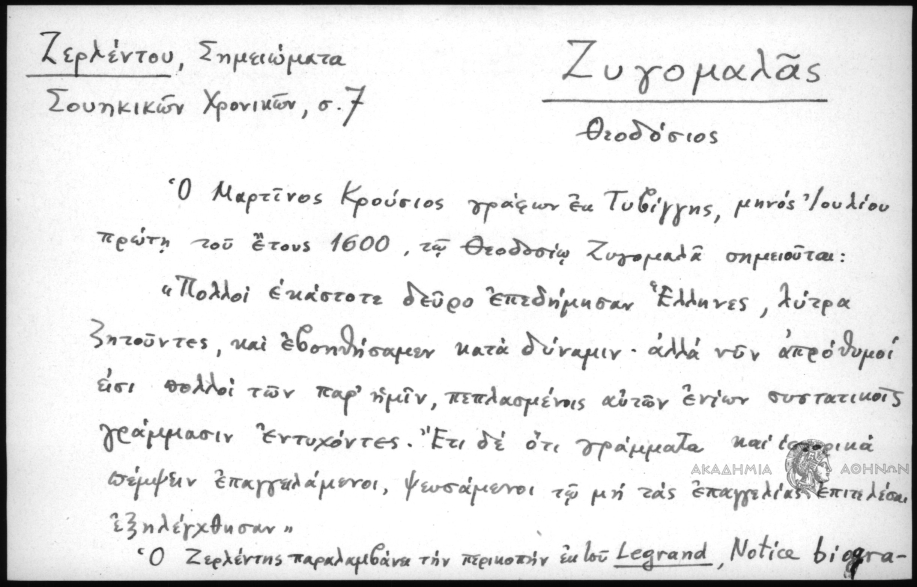 Ζερλέντου, Σημειώματα
Σουηκικῶν Χρονικῶν, σ. 7
Ζυγομαλᾶς
Θεοδόσιος
Ὁ Μαρτῖνος Κρούσιος γράφων ἐκ Τυβίγγης, μηνός Ἰουλίου
πρώτῃ τοῦ ἔτους 1600, τῷ Θεοδοσίῳ Ζυγομαλᾷ σημειοῦται:
«Πολλοί ἑκάστοτε δεῦρο ἐπεδήμησαν Ἕλληνες, λύτρα
ζητοῦντες, καί ἐβοηθήσαμεν κατά δύναμιν· ἀλλά νῦν ἀπρόθυμοί
εἰσι πολλοί τῶν παρ' ἡμῖν, πεπλασμένοις αὐτῶν ἐνίων συστατικοῖς
γράμμασιν ἐντυχόντες. Ἔτι δέ ὅτι γράμματα καί ἱστορικά
πέμψειν ἐπαγγειλάμενοι, ψευσάμενοι τῷ μή τάς ἐπαγγελίας ἐπιτελέσαι
ἐξηλέγχθησαν»
Ὁ Ζερλέντης παραλαμβάνει τήν περικοπήν ἐκ τοῦ Legrand, Notice biogra-
ΑΚΑΔΗΜΙΑ ΑΘΗΝΩΝ